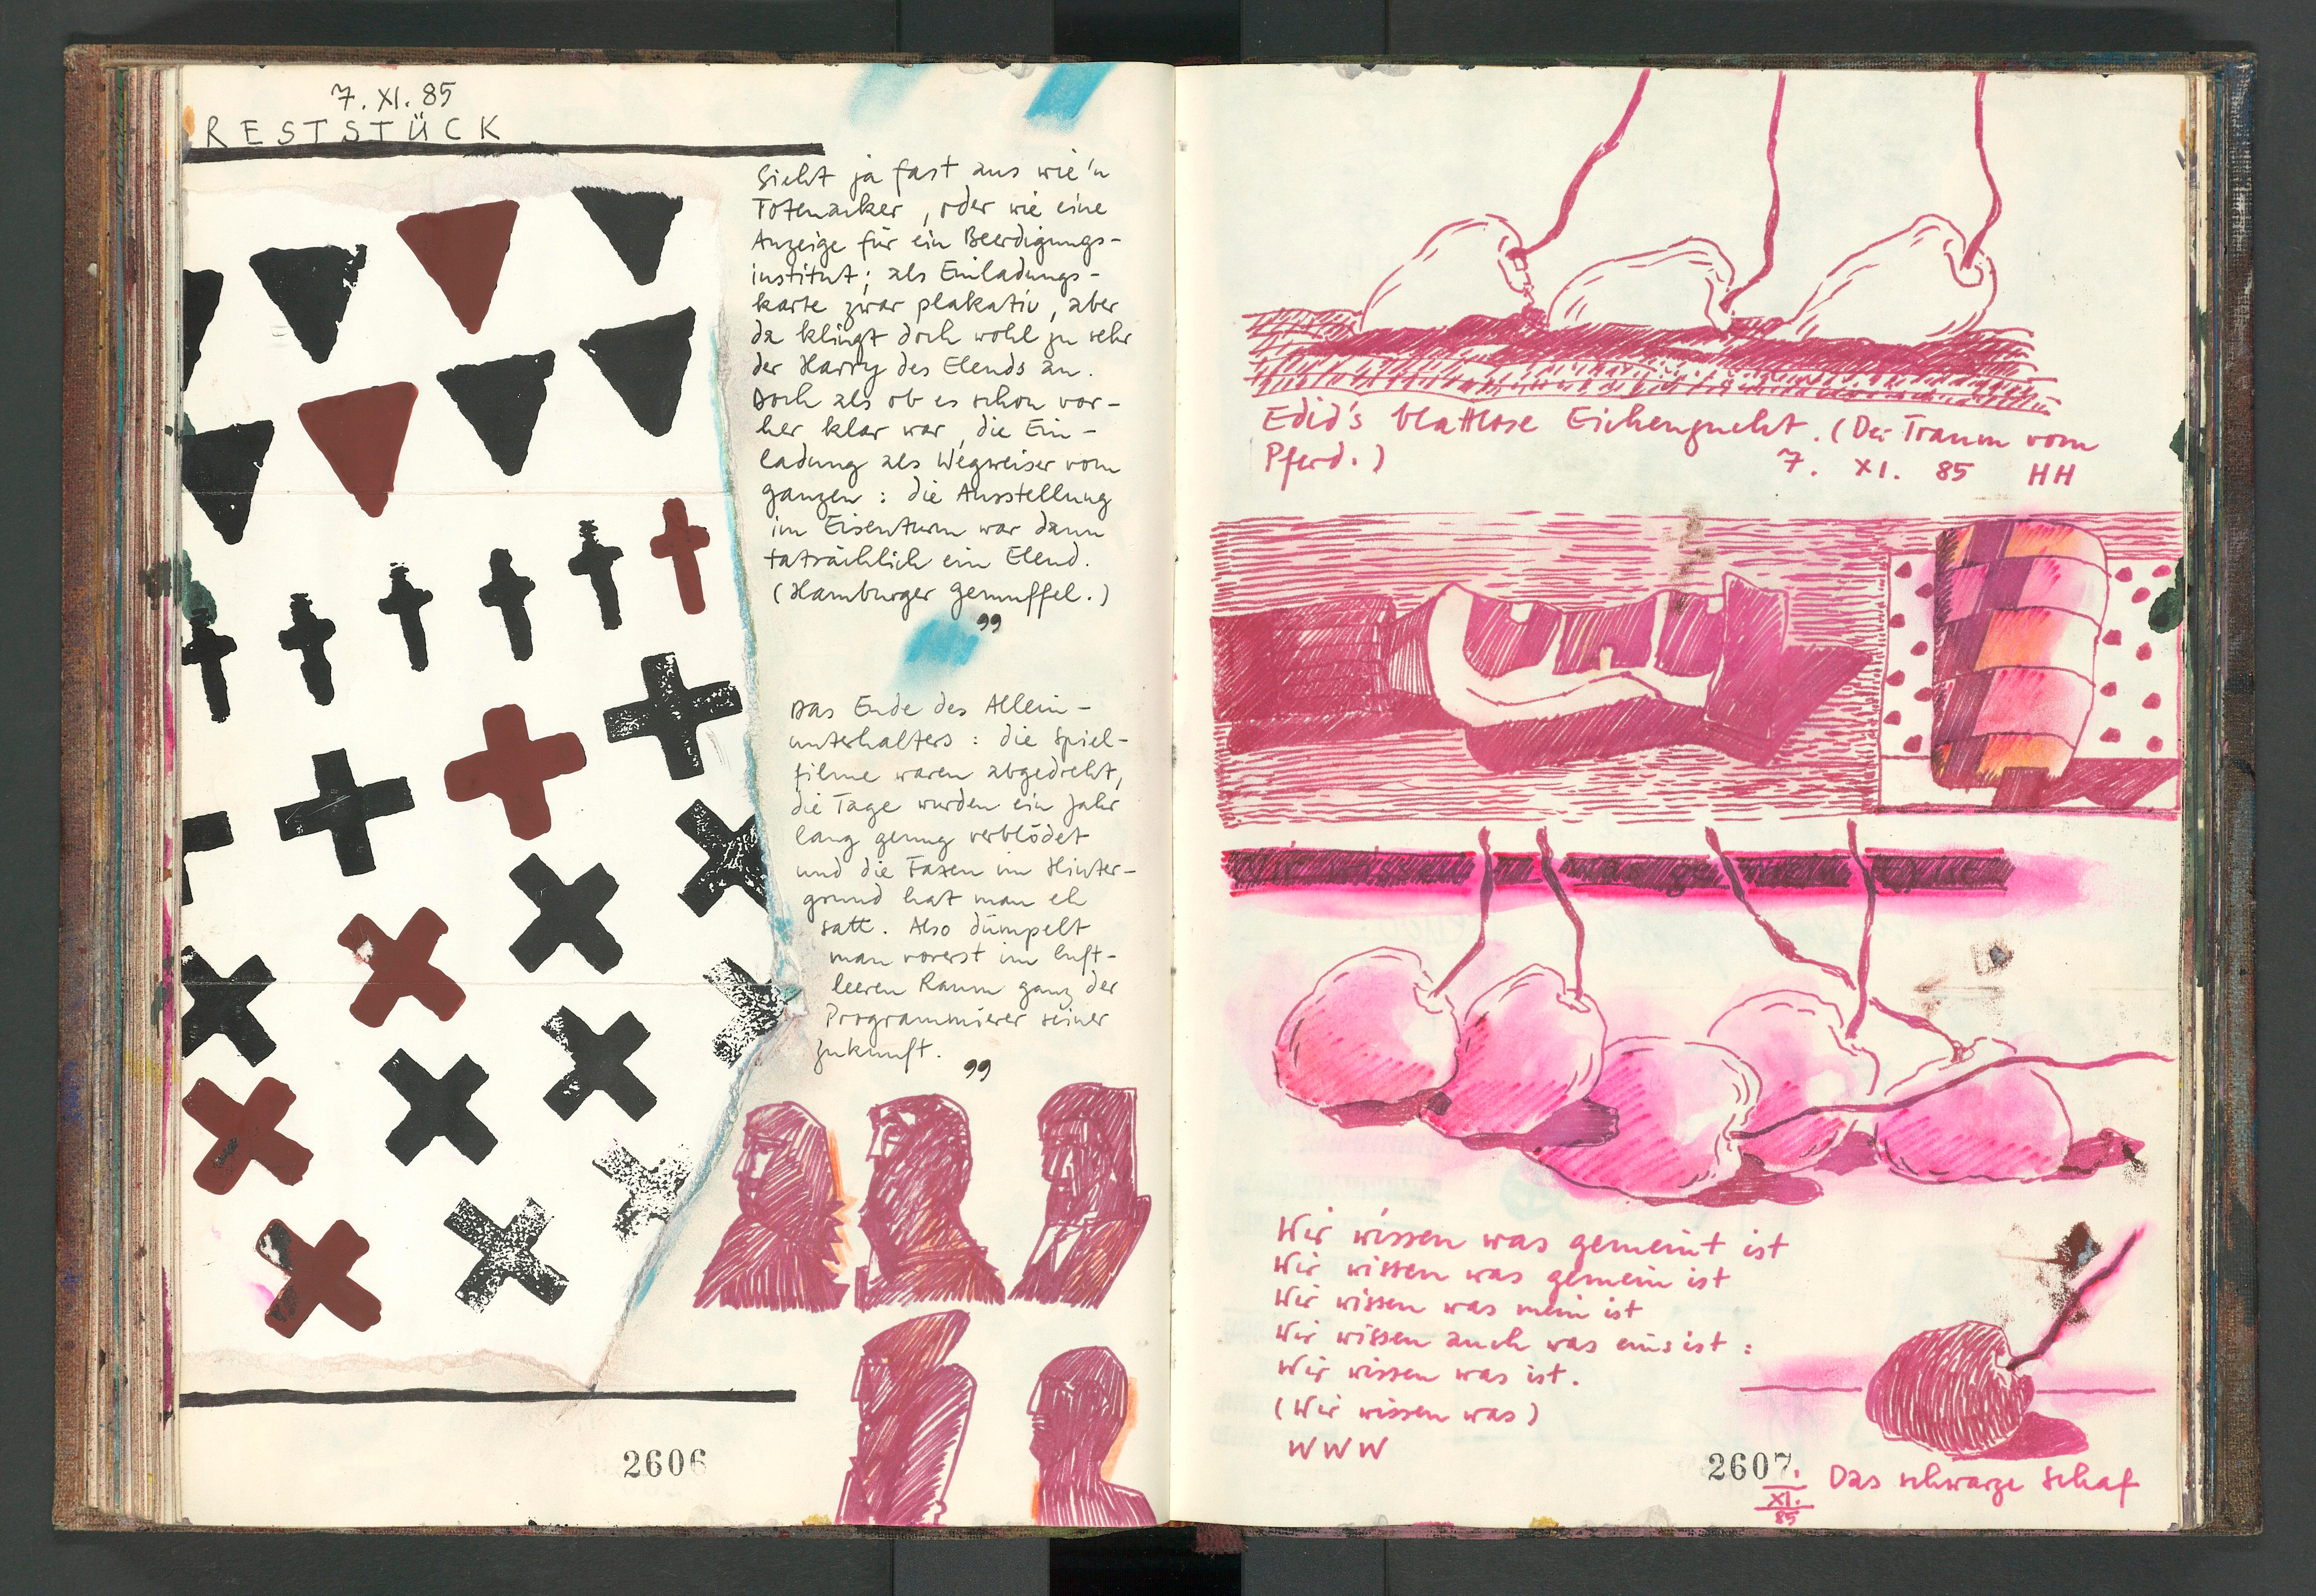 7. XI. 85
RESTSTÜCK
Sieht ja fast aus wie'n
Totenacker, oder wie eine
Anzeige für ein Beerdigungs-
institut; als Einladungs-
karte zwar plakativ, aber
da klingt doch wohl zu sehr
der Harry des Elends an.
Doch als ob es schon vor-
her klar war, die Ein-
ladung als Wegweiser vom
ganzen: die Ausstellung
im Eisenturm war dann
tatsächlich ein Elend.
(Hamburger Gemuffel.)
"
Das Ende des Allein-
unterhalters: die Spiel-
filme waren abgedreht,
die Tage wurden ein Jahr
lang genug verblödet
und die Faxen im Hinter-
grund hat man eh
satt. Also dümpelt
man vorerst im luft-
leeren Raum ganz der
Programmierer seiner
Zukunft.
"
2606
Edid's blattlose Eichenzucht. (Der Traum vom
Pferd.)
7. XI. 85 HH
Wir wissen was gemeint ist
Wir wissen was gemein ist
Wir wissen was mein ist
Wir wissen auch was eins ist:
Wir wissen was ist.
(Wir wissen was)
WWW
2607
7.
XI.
85
Das schwarze Schaf